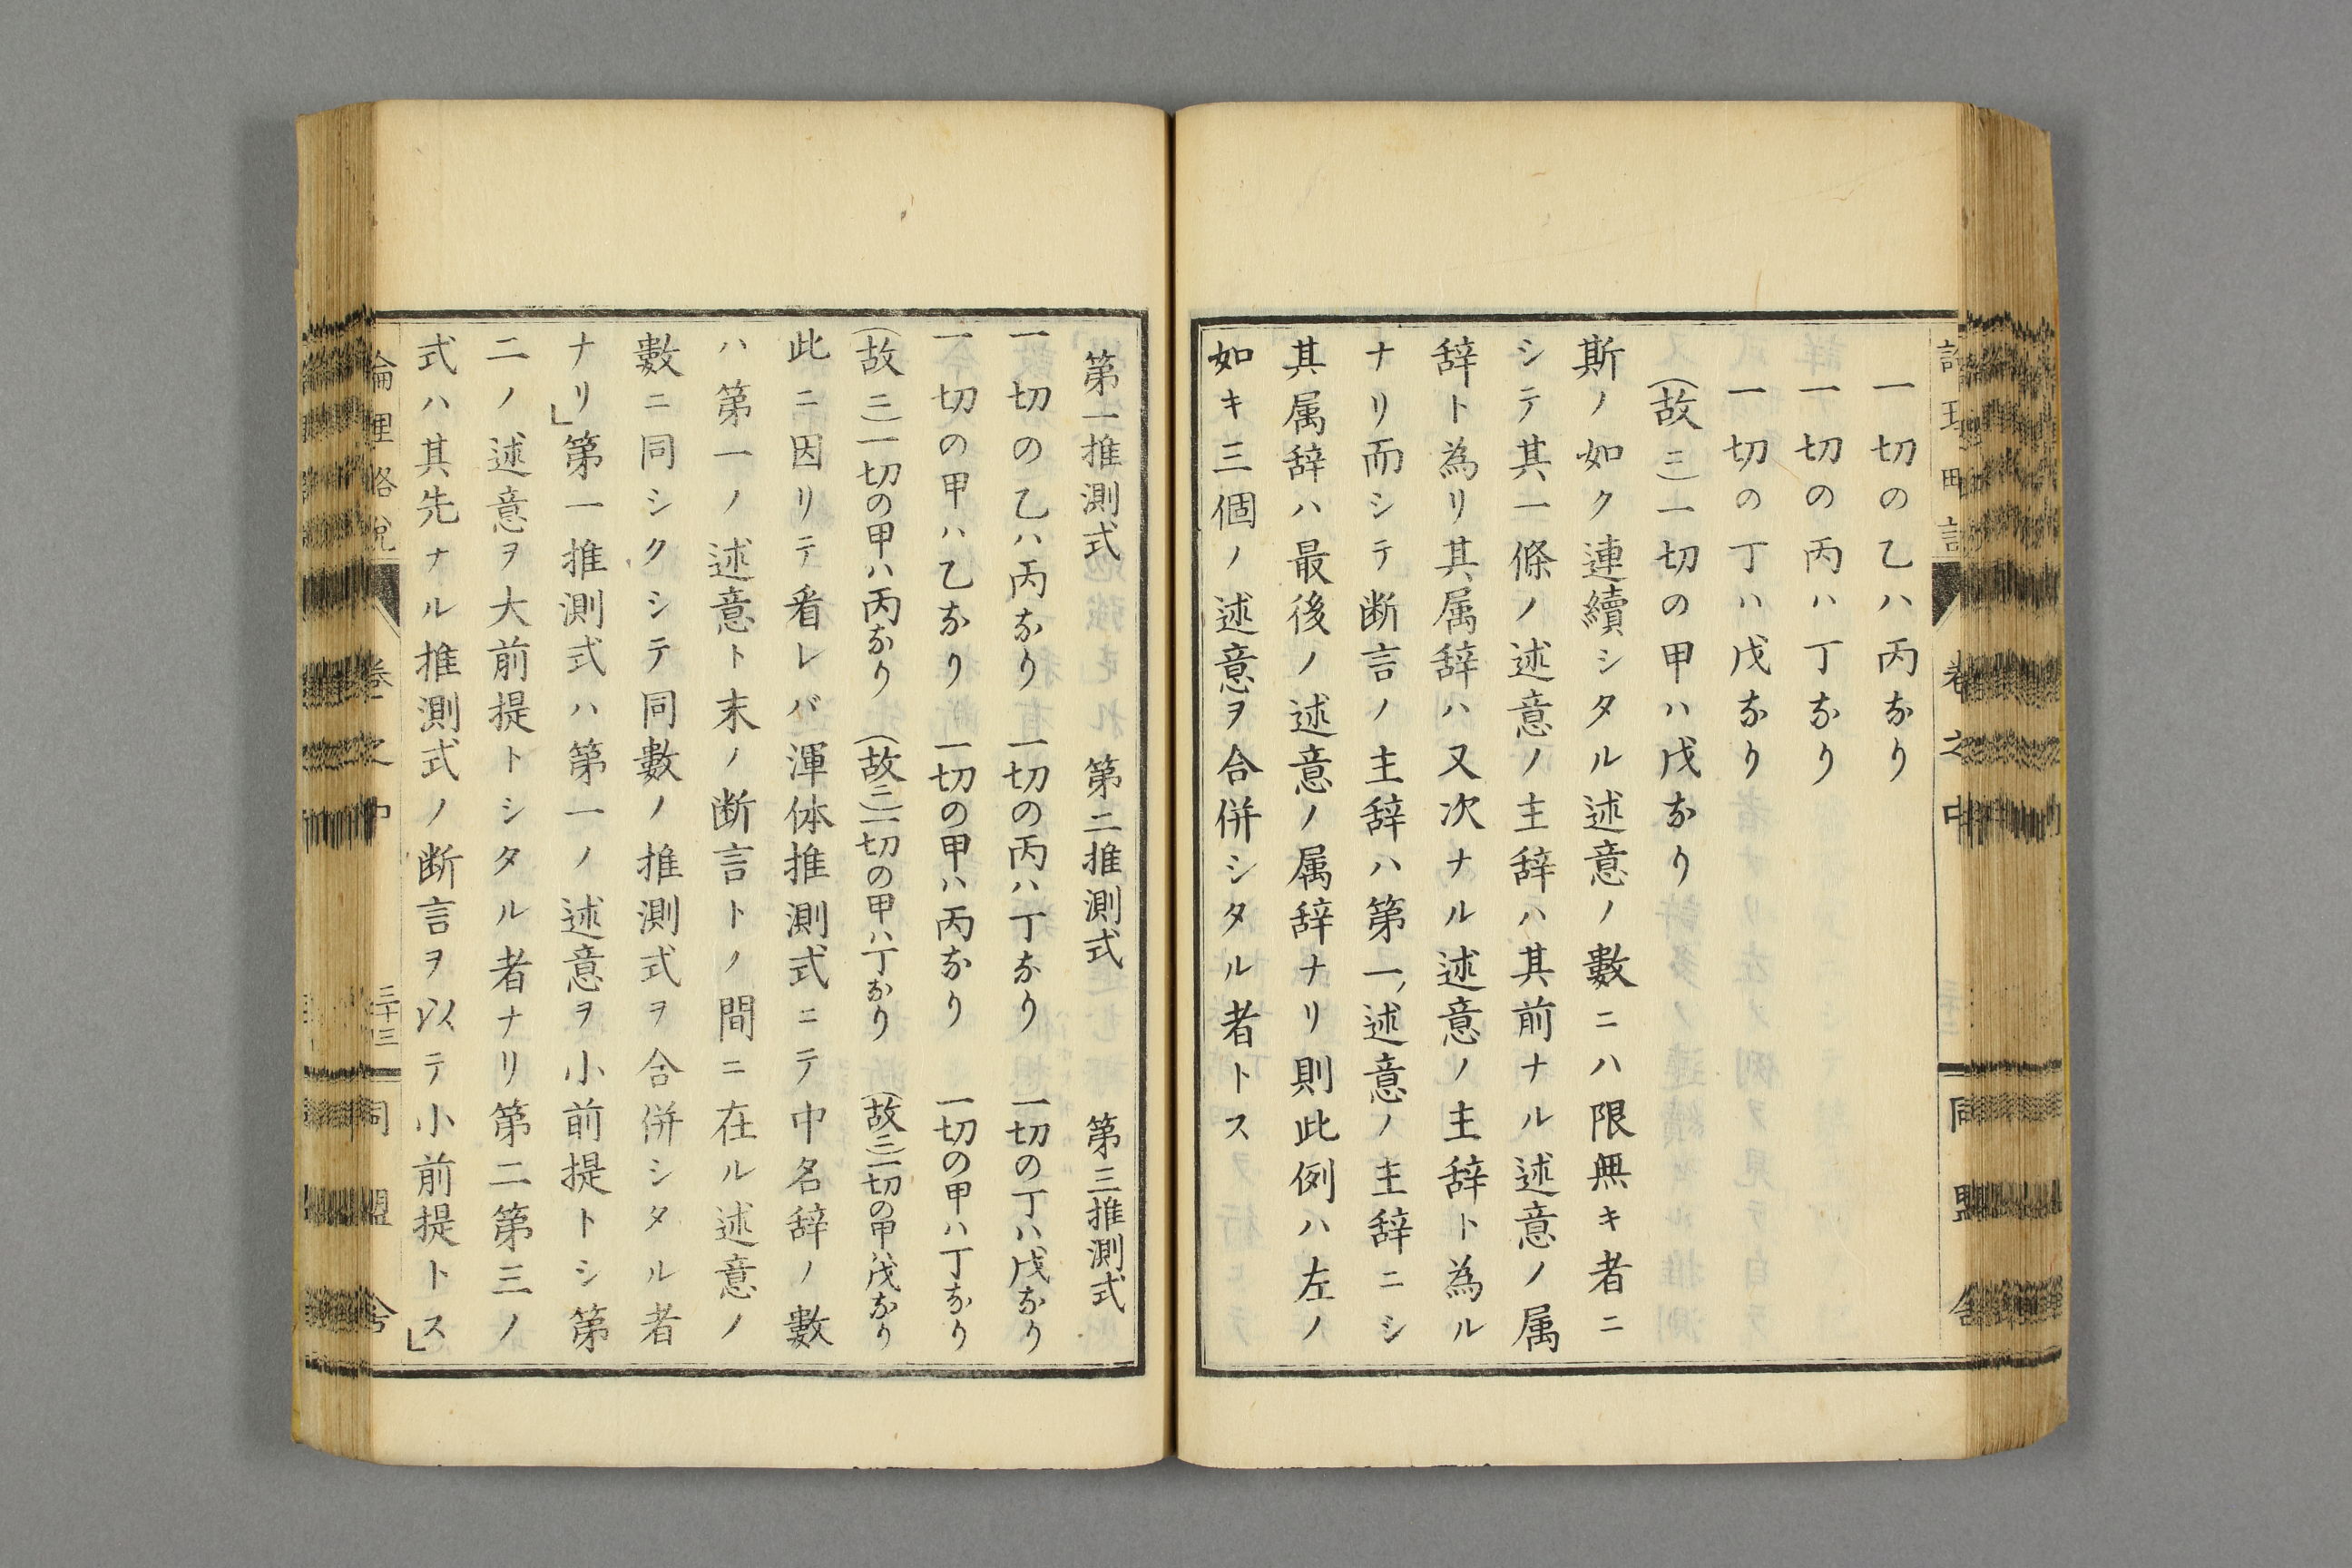 一切の乙ハ丙なり
一切の丙ハ丁なり
一切の丁ハ戊なり
(故ニ)一切の甲ハ戊なり
斯ノ如ク連續シタル述意ノ數ニハ限無キ者ニ
シテ其一條ノ述意ノ主辞ハ其前ナル述意ノ属
辞ト為リ其属辞ハ又次ナル述意ノ主辞ト為ル
ナリ而シテ断言ノ主辞ハ第一ノ述意ノ主辞ニシ
其属辞ハ最後ノ述意ノ属辞ナリ則此例ハ左ノ
如キ三個ノ述意ヲ合併シタル者トス
第一推測式 第二推測式 第三推測式
一切の乙ハ丙なり 一切の丙ハ丁なり 一切の丁ハ戊なり
一切の甲ハ乙なり 一切の甲ハ丙なり 一切の甲ハ丁なり
(故ニ)一切の甲ハ丙なり (故ニ)一切の甲ハ丁なり (故ニ)一切の甲ハ戊なり
此ニ因リテ看レバ渾体推測式ニテ中名辞ノ數
ハ第一ノ述意ト末ノ断言トノ間ニ在ル述意ノ
數ニ同シクシテ同數ノ推測式ヲ合併シタル者
ナリ」第一推測式ハ第一ノ述意ヲ小前提トシ第
二ノ述意ヲ大前提トシタル者ナリ第二第三ノ
式ハ其先ナル推測式ノ断言ヲ以テ小前提トス」
卷之中
三十三
同盟舎